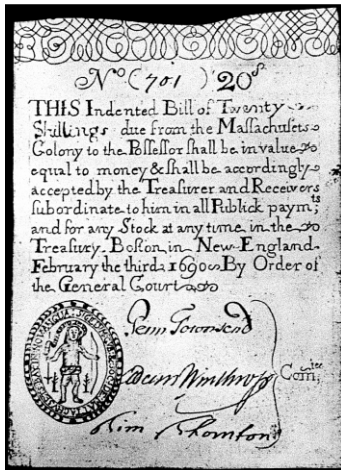 No (701) 20s
THIS Indented Bill of Twenty
Shillings due from the Massachusets
Colony to the Possessor shall be in value
equal to money & shall be accordingly
accepted by the Treasurer and Receivers
subordinate to him in all Publick paymts
and for any Stock at any time in the
Treasury. Boston in New-England.
February the third 1690 By Order of
the General Court
Penn Townsend
Adam Winthrop Comtee
Tim Thornton